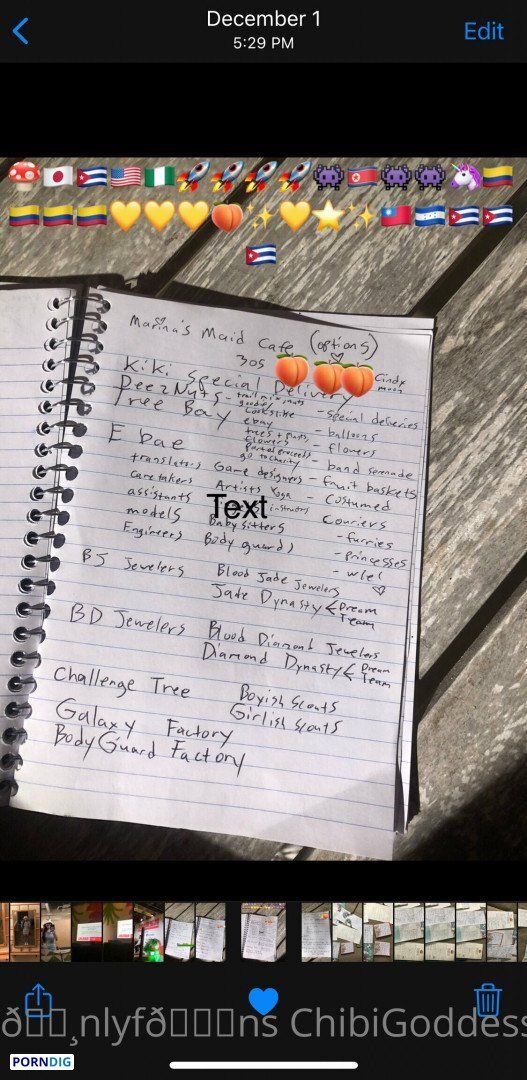 December 1
5:29 PM
Edit
Marina's Maid Cafe (options)
30s
Kiki Special Delivery
Cindy moon
DeezNuts - trail mix, nuts
goodies
- special deliveries
Tree Bay
looks like
ebay
- balloons
trees + plants,
flowers
- flowers
E bae
go to charity
- band serenade
translators
Game designers
- fruit baskets
caretakers
Artists
Yoga
- Costumed
assistants
instructors
Couriers
Text
models
Babysitters
- furries
Engineers
Body guards
- princesses
- wlel
BJ Jewelers
Blood Jade Jewelers
Jade Dynasty < Dream
Team
BD Jewelers
Blood Diamond Jewelers
Diamond Dynasty < Dream
Team
Challenge Tree
Boyish Scouts
Girlish Scouts
Galaxy Factory
BodyGuard Factory
ChibiGoddess
PORNDIG